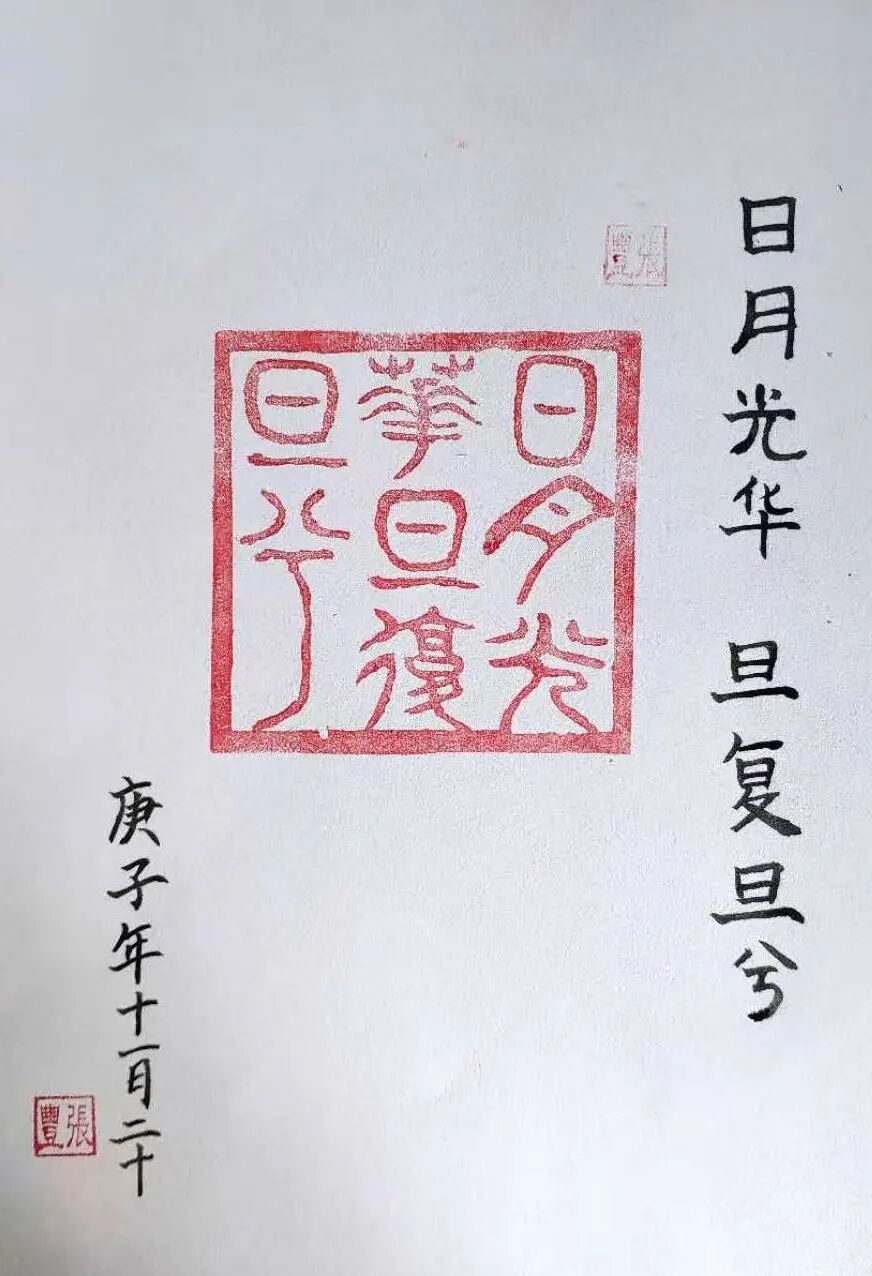 日月光华 旦复旦兮
張豐
日月光
華旦復
旦兮
庚子年十一月二十
張豐